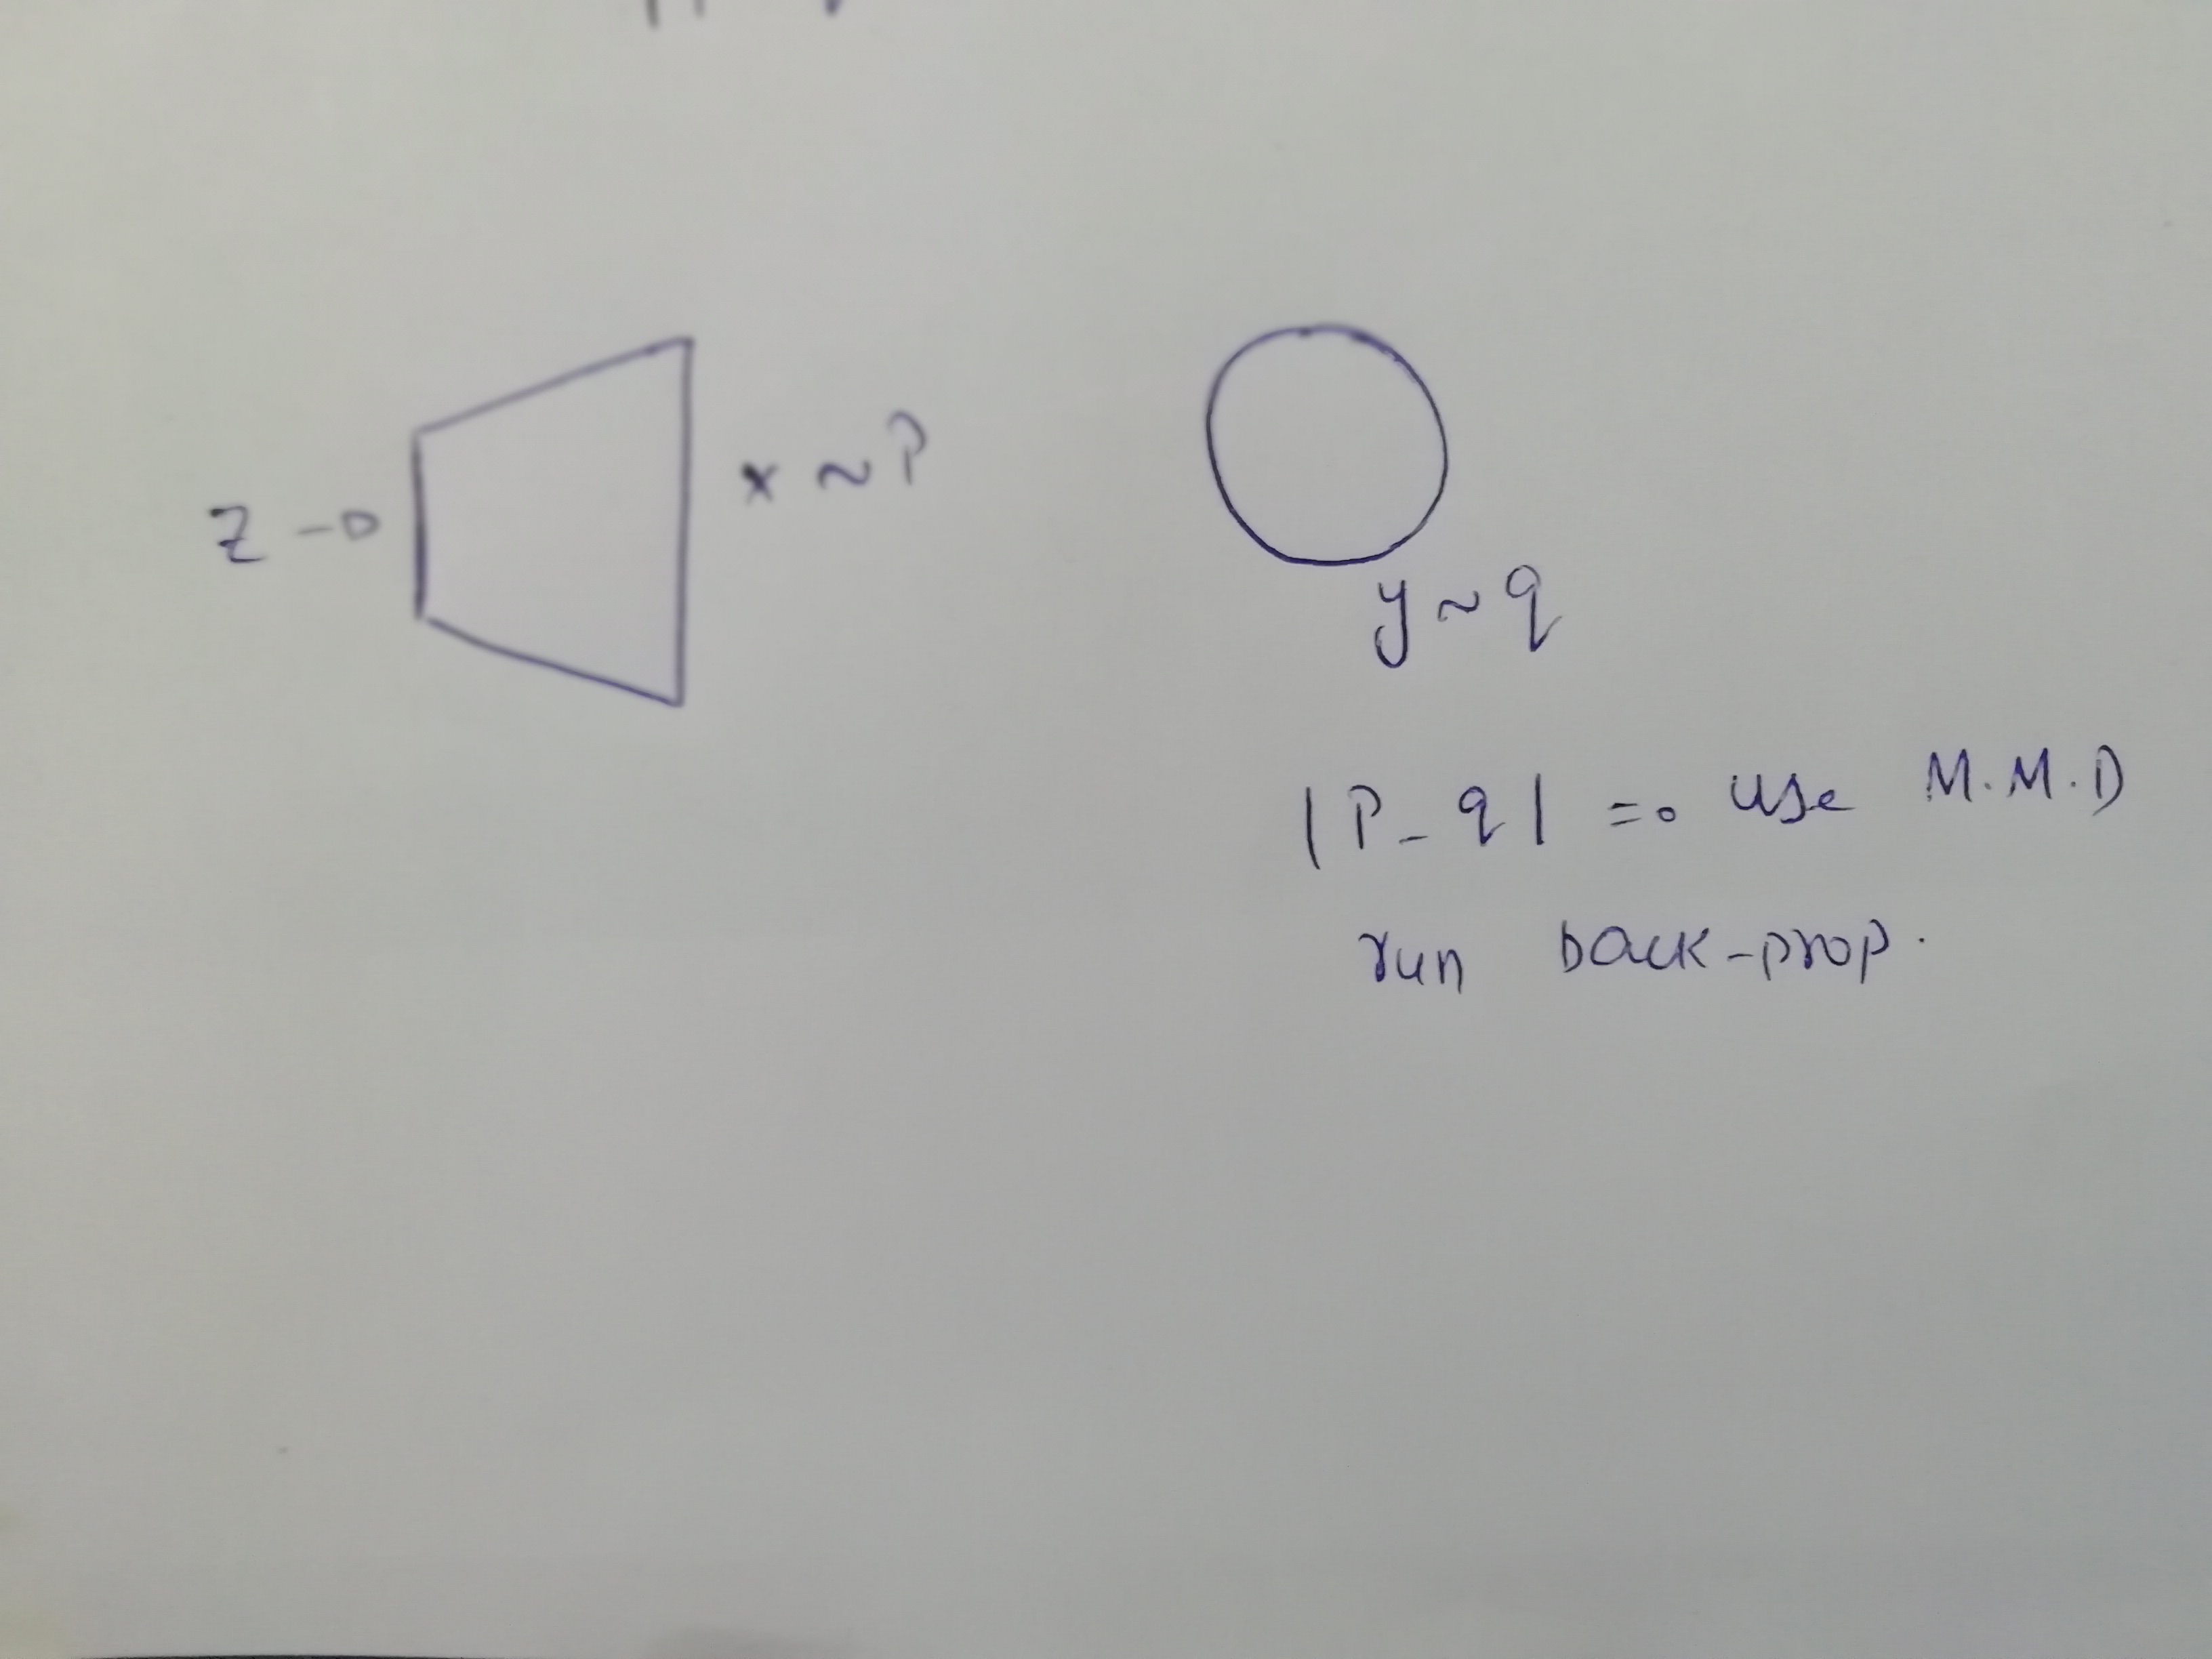 z → x ~ P
y ~ q
|P - q| => use M.M.D
run back-prop.